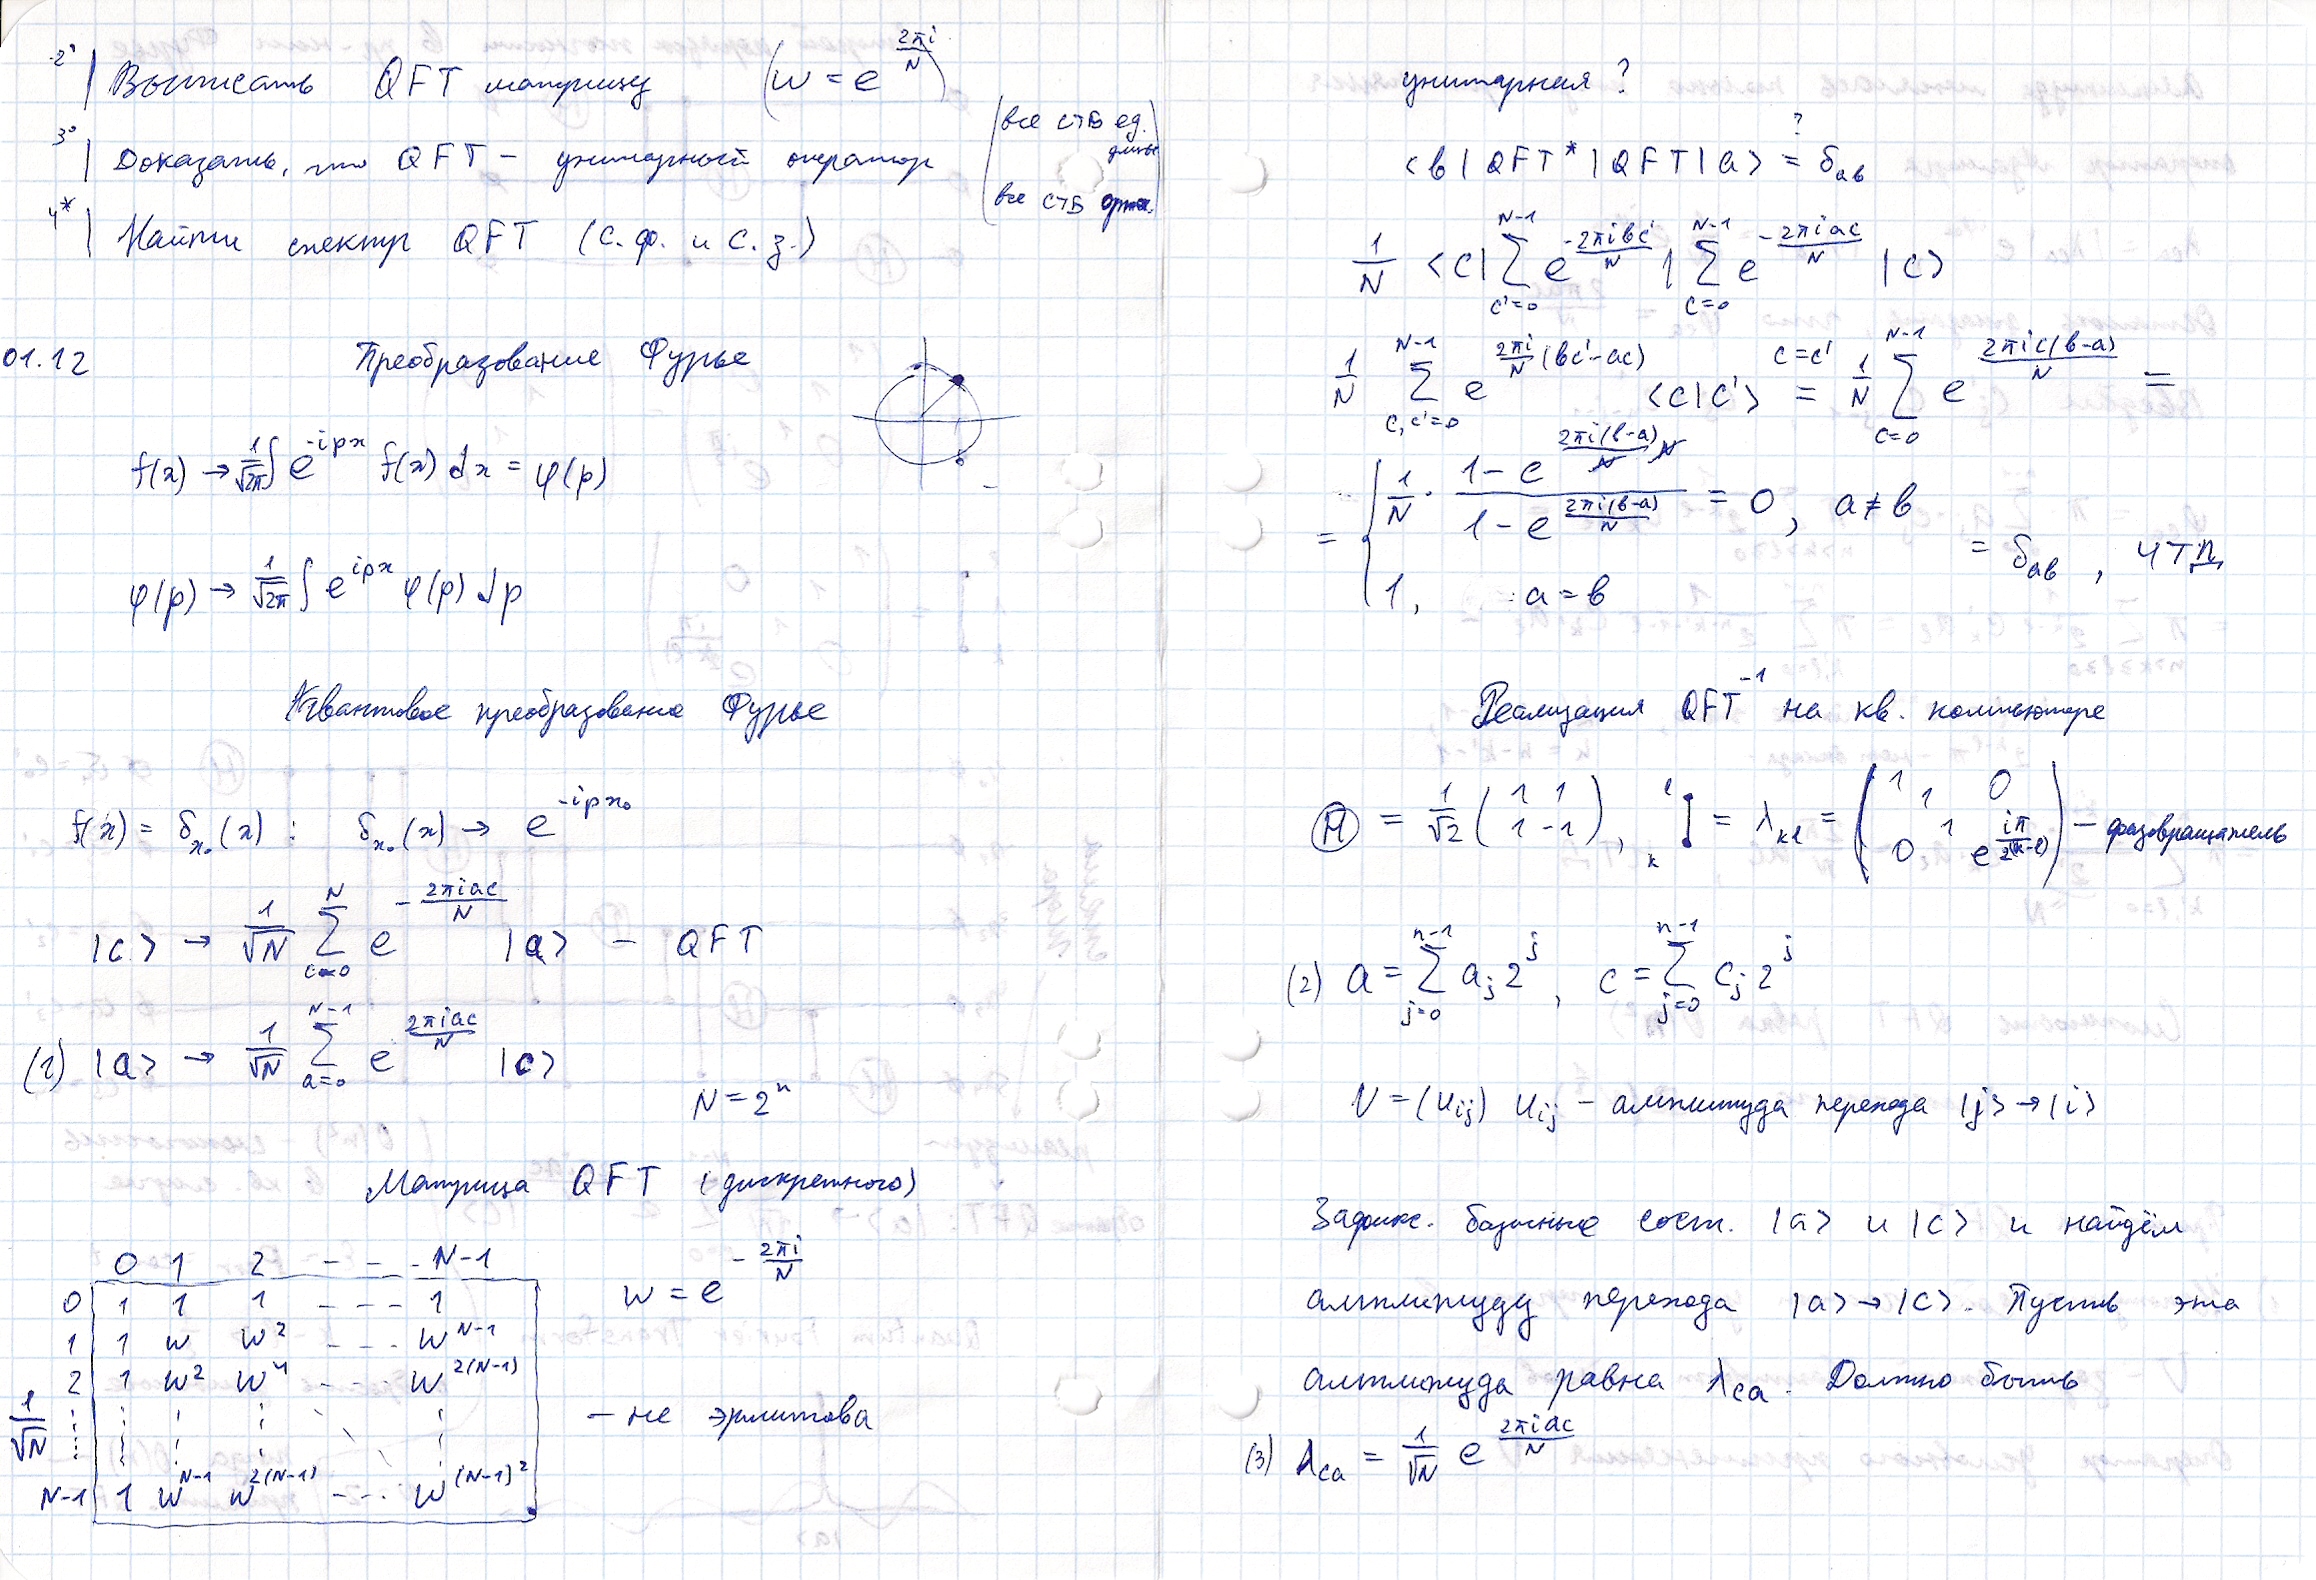 2° | Выписать QFT матрицу (w = e^{2πi/N})
3° | Доказать, что QFT – унитарный оператор (все стб ед. длины
все стб ортог.)
4* | Найти спектр QFT (с.ф. и с.з.)
01.12 Преобразование Фурье
f(x) → 1/√2π ∫ e^{-ipx} f(x) dx = φ(p)
φ(p) → 1/√2π ∫ e^{ipx} φ(p) dp
Квантовое преобразование Фурье
f(x) = δ_{x₀}(x) : δ_{x₀}(x) → e^{-ipx₀}
|c> → 1/√N ∑_{c=0}^{N} e^{-2πiac/N} |a> – QFT
(1) |a> → 1/√N ∑_{a=0}^{N-1} e^{2πiac/N} |c>
N = 2^n
Матрица QFT (дискретного)
0 1 2 - - - N-1
0 1 1 1 - - - 1
1 1 w w² - - - w^{N-1}
2 1 w² w⁴ - - - w^{2(N-1)}
1/√N
N-1 1 w^{N-1} w^{2(N-1)} - - - w^{(N-1)²}
w = e^{-2πi/N}
– не эрмитова
унитарная ?
<b| QFT* | QFT |a> =? δ_{ab}
1/N <c| ∑_{c'=0}^{N-1} e^{-2πibc'/N} | ∑_{c=0}^{N-1} e^{-2πiac/N} |c>
1/N ∑_{c,c'=0}^{N-1} e^{2πi/N (bc'-ac)} <c|c'> =^{c=c'} 1/N ∑_{c=0}^{N-1} e^{2πic(b-a)/N} =
= { 1/N · (1 - e^{2πi(b-a)/N N}) / (1 - e^{2πi(b-a)/N}) = 0, a ≠ b
1, a = b
= δ_{ab}, чтд
Реализация QFT^{-1} на кв. компьютере
(H) = 1/√2 (1 1
1 -1), l k = λ_{kl} = (1 0
1
1
0 e^{iπ/2^{(k-l)}}) – фазовращатель
(2) a = ∑_{j=0}^{n-1} a_j 2^j, c = ∑_{j=0}^{n-1} c_j 2^j
U = (u_{ij}) u_{ij} – амплитуда перехода |j> → |i>
Зафикс. базисные сост. |a> и |c> и найдём
амплитуду перехода |a> → |c>. Пусть эта
амплитуда равна λ_{ca}. Должно быть
(3) λ_{ca} = 1/√N e^{2πiac/N}